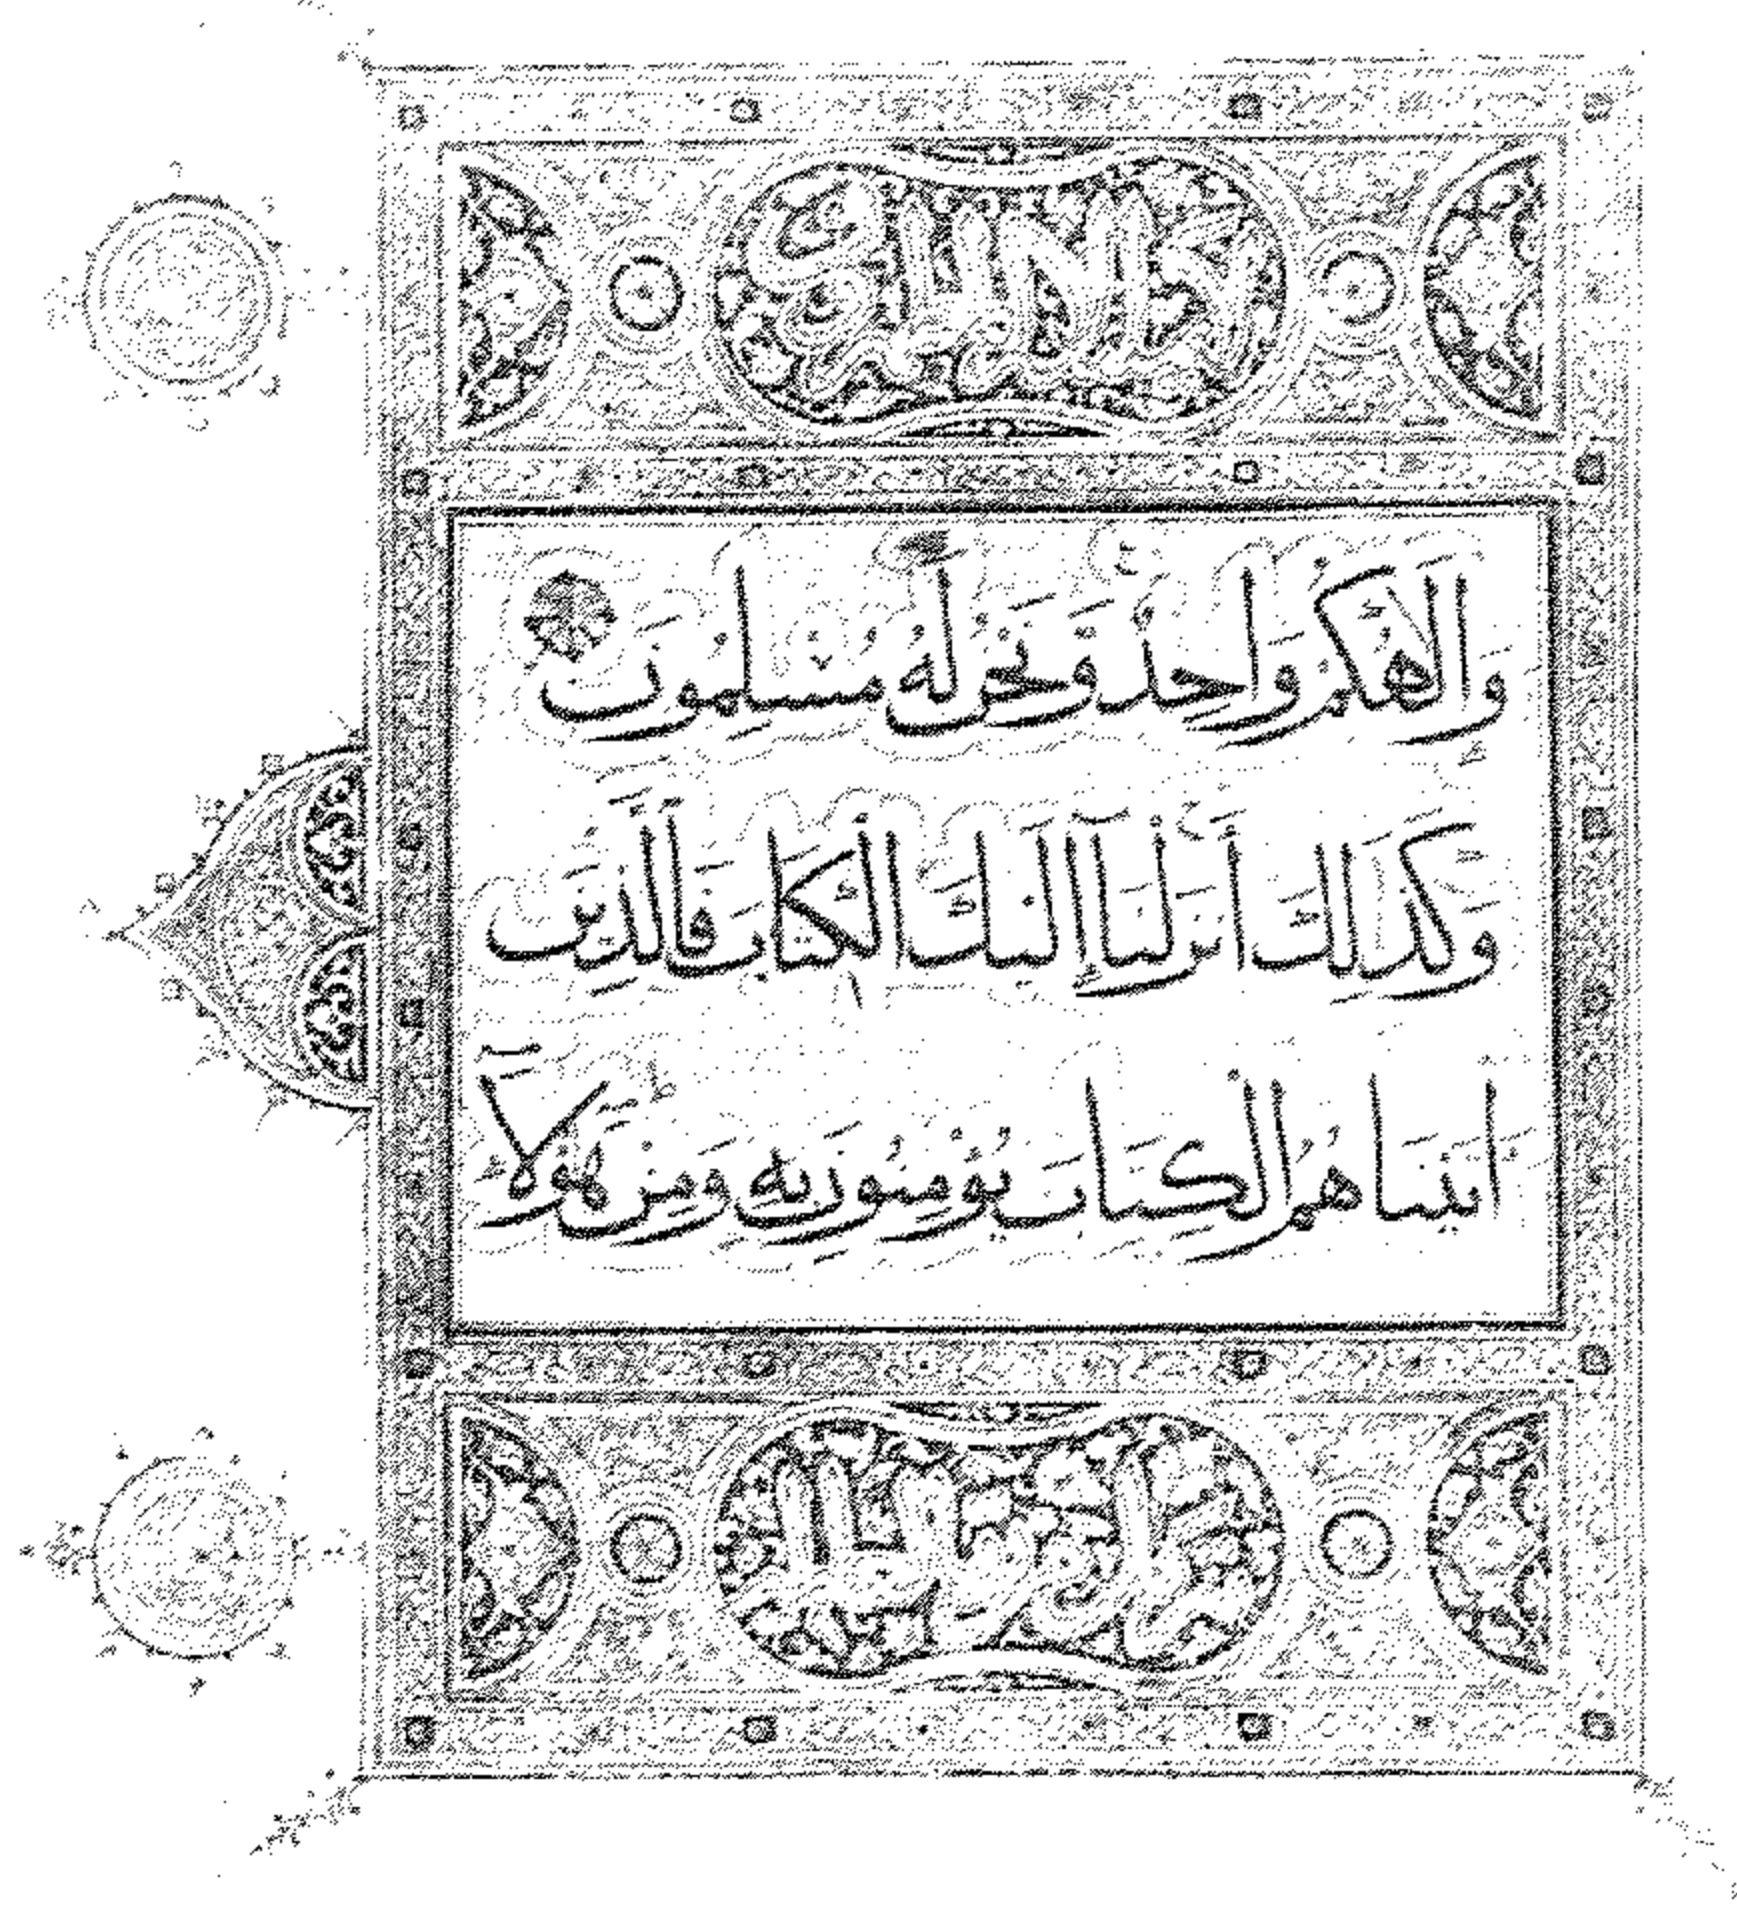 وَإِلَٰهُكُمْ وَاحِدٌ وَنَحْنُ لَهُ مُسْلِمُونَ
وَكَذَٰلِكَ أَنزَلْنَآ إِلَيْكَ الْكِتَابَ فَالَّذِينَ
اتَيْنَاهُمُ الْكِتَابَ يُؤْمِنُونَ بِهِ وَمِنْ هَؤُلَآ